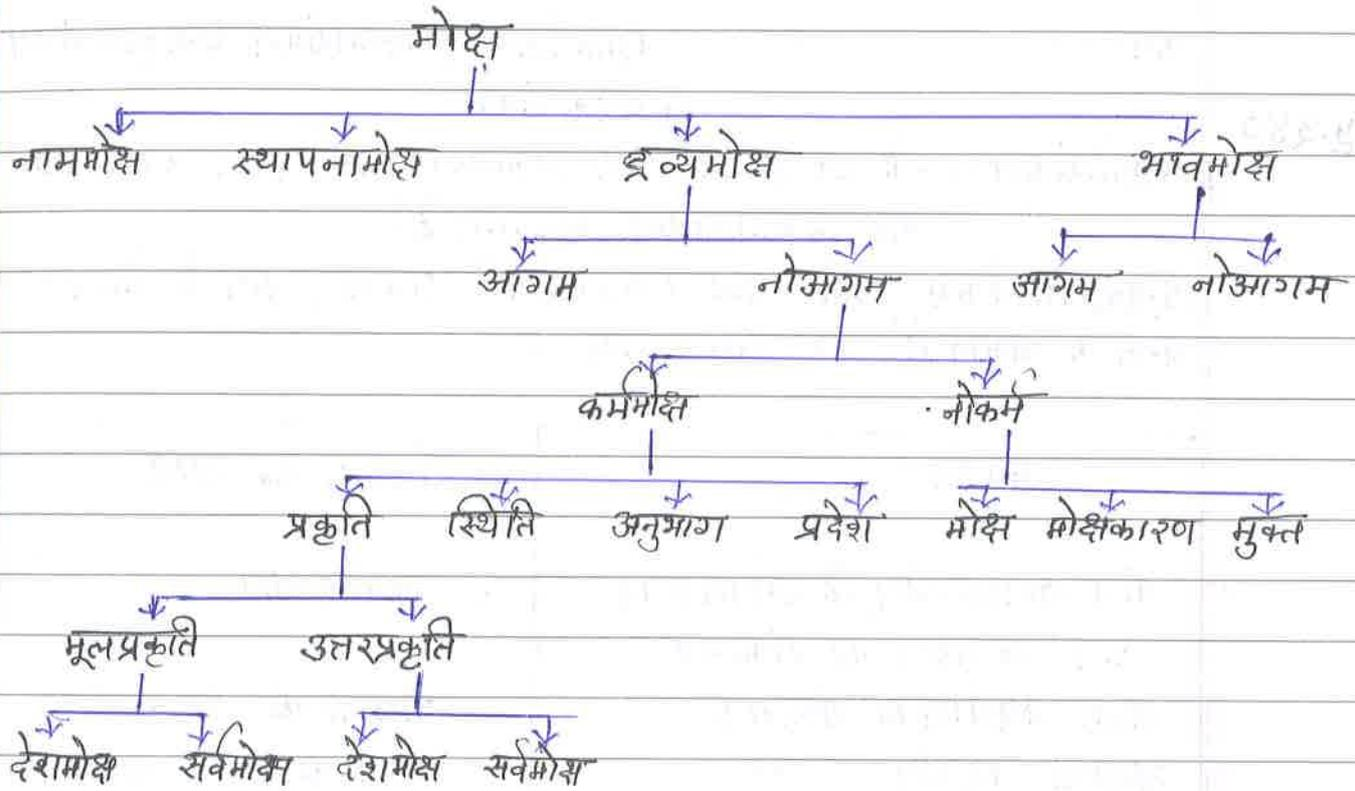 मोक्ष
नाममोक्ष स्थापनामोक्ष द्रव्यमोक्ष भावमोक्ष
आगम नोआगम आगम नोआगम
कर्ममोक्ष नोकर्म
प्रकृति स्थिति अनुभाग प्रदेश मोक्ष मोक्षकारण मुक्त
मूलप्रकृति उत्तरप्रकृति
देशमोक्ष सर्वमोक्ष देशमोक्ष सर्वमोक्ष